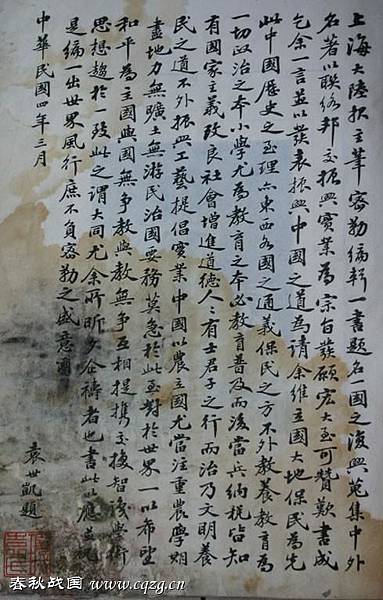 上海大陸報主筆密勒編輯一書題名一國之復興蒐集中外
名著以聯絡邦交振興實業為宗旨發願宏大至可贊歎書成
乞余一言並以發表振興中國之道為請余維立國大地保民為先
此中國歷史之至理亦東西各國之通義保民之方不外教養教育為
一切政治之本小學尤為教育之本必教育普及而後當兵納稅皆知
有國家主義改良社會增進道德人人有士君子之行而治乃文明養
民之道不外振興工藝提倡實業中國以農立國尤當注重農學期
盡地力無曠土無游民治國要務莫急於此至對於世界一以希望
和平為主國與國無爭教與教無爭互相提携交換智識學術
思想趨於一致此之謂大同尤余所昕夕企禱者也書此以應並祝
是編一出世界風行庶不負密勒之盛意爾
中華民國四年三月
袁世凱題
春秋战国 www.cqzg.cn